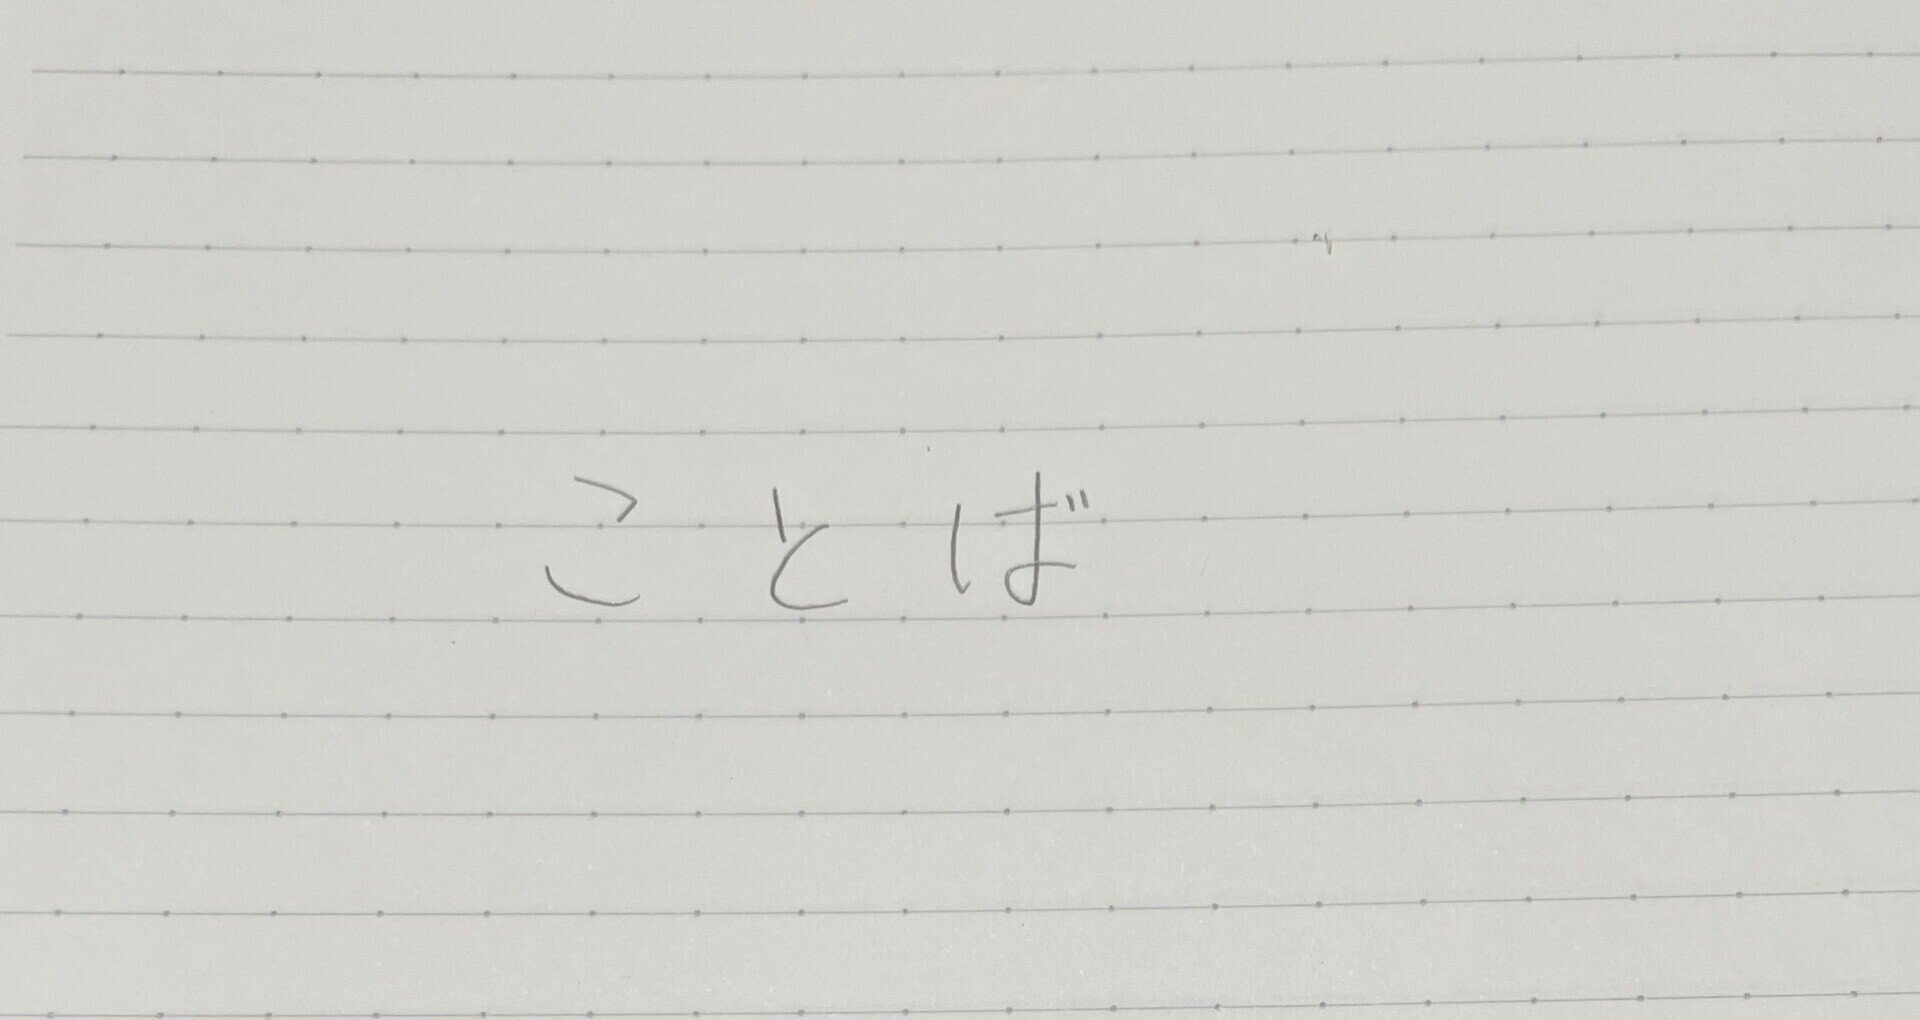 ことば